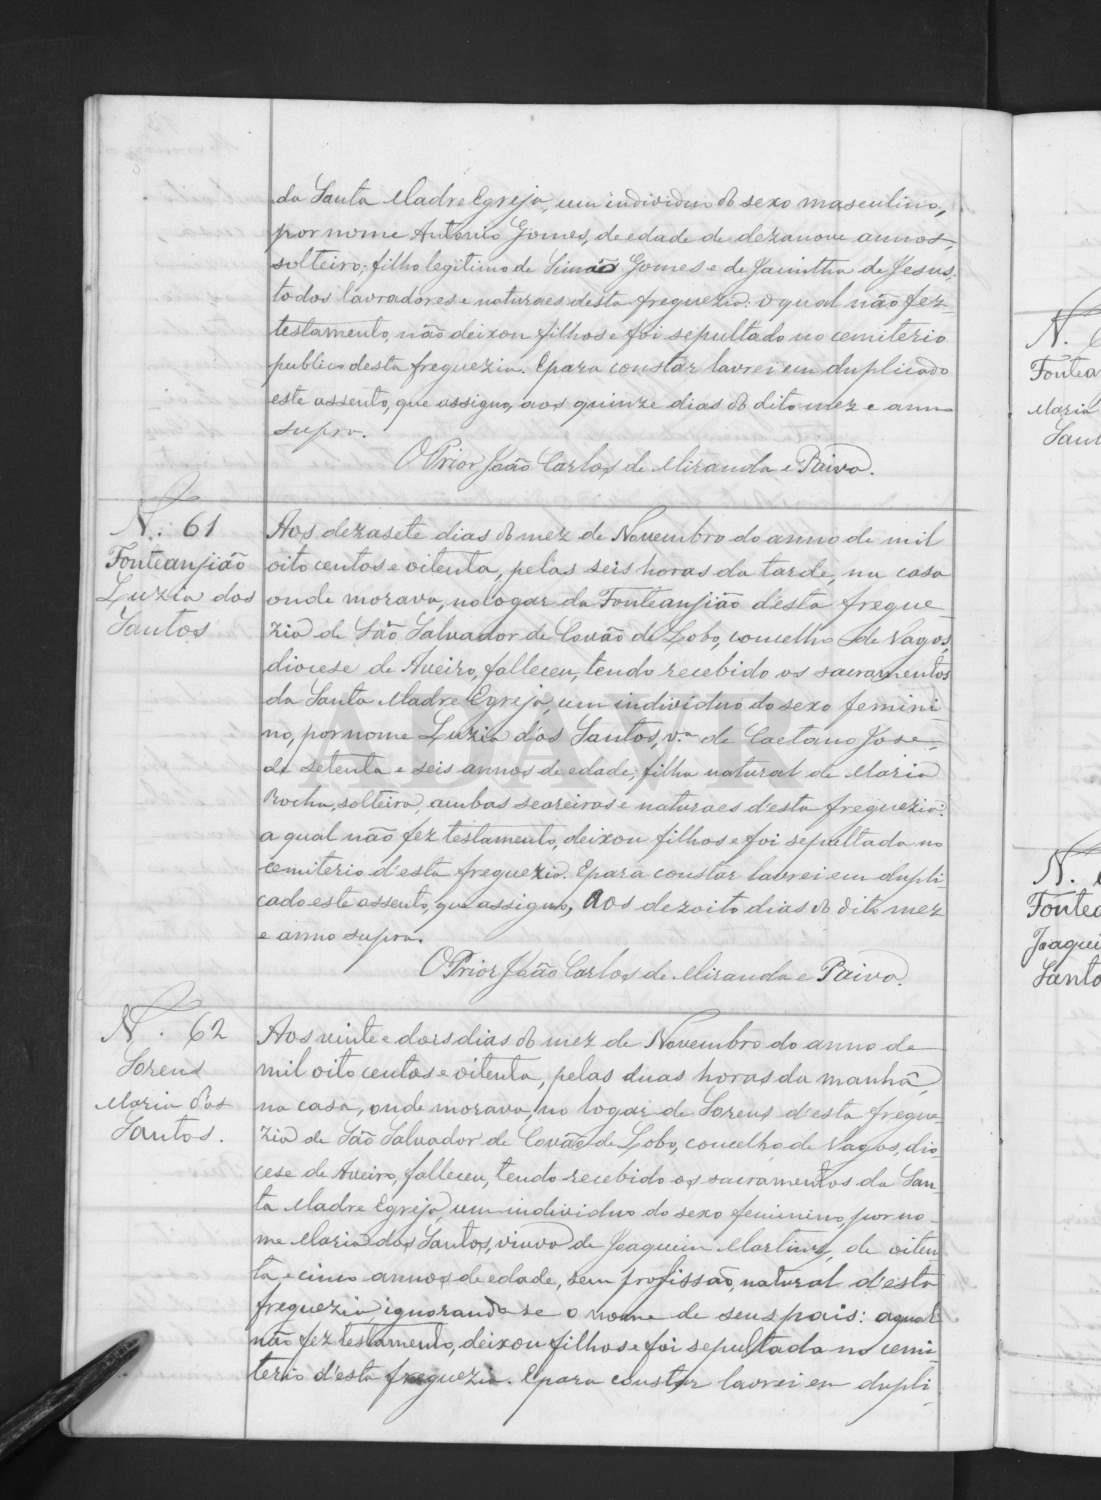 da Santa Madre Egreja, um individuo do sexo masculino,
por nome Antonio Gomes, de edade de dezanove annos,
solteiro, filho legitimo de Simão Gomes e de Jacintha de Jesus,
todos lavradores e naturaes desta freguezia: o qual não fez
testamento, não deixou filhos e foi sepultado no cemiterio
publico desta freguezia. E para constar lavrei em duplicado
este assento, que assigno, aos quinze dias do dito mez e anno
supra.
O Prior João Carlos de Miranda e Paiva.
N. 61
Fonteanjião
Luzia dos
Santos
Aos dezasete dias do mez de Novembro do anno de mil
oito centos e oitenta, pelas seis horas da tarde, na casa
onde morava, no logar da Fonteanjião d'esta fregue
zia de São Salvador de Covão de Lobo, concelho de Vagos,
diocese de Aveiro, falleceu, tendo recebido os sacramentos
da Santa Madre Egreja, um individuo do sexo femini
no, por nome Luzia dos Santos, v.a de Caetano Jose,
de setenta e seis annos de edade, filha natural de Maria
Rocha, solteira, ambas seareiras e naturaes d'esta freguezia:
a qual não fez testamento, deixou filhos e foi sepultada no
cemiterio d'esta freguezia. E para constar lavrei em dupli
cado este assento, que assigno, Aos dezoito dias do dito mez
e anno supra.
O Prior João Carlos de Miranda e Paiva.
N. 62
Maria dos
Santos.
Aos vinte e dois dias do mez de Novembro do anno de
mil oito centos e oitenta, pelas duas horas da manhã,
na casa, onde morava, no logar de d'esta fregue
zia de São Salvador de Covão de Lobo, concelho de Vagos, dio
cese de Aveiro, falleceu, tendo recebido os sacramentos da San
ta Madre Egreja, um individuo do sexo feminino, por no
me Maria dos Santos, viuva de Joaquim Martins, de oiten
ta e cinco annos de edade, sem profissão, natural d'esta
freguezia ignorando se o nome de seus pais: a qual
não fez testamento, deixou filhos e foi sepultada no cemi
terio d'esta freguezia. E para constar lavrei em dupli
N.
Maria
N.
ADAVR